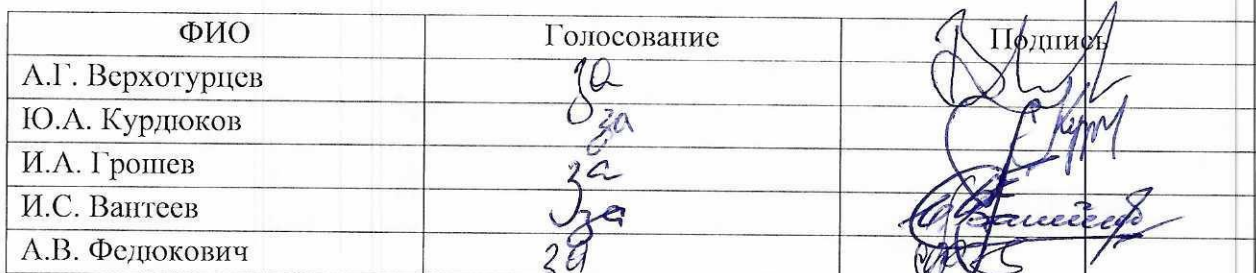 ФИО Голосование Подпись
А.Г. Верхотурцев за
Ю.А. Курдюков за
И.А. Грошев за
И.С. Вантеев за
А.В. Федюкович за